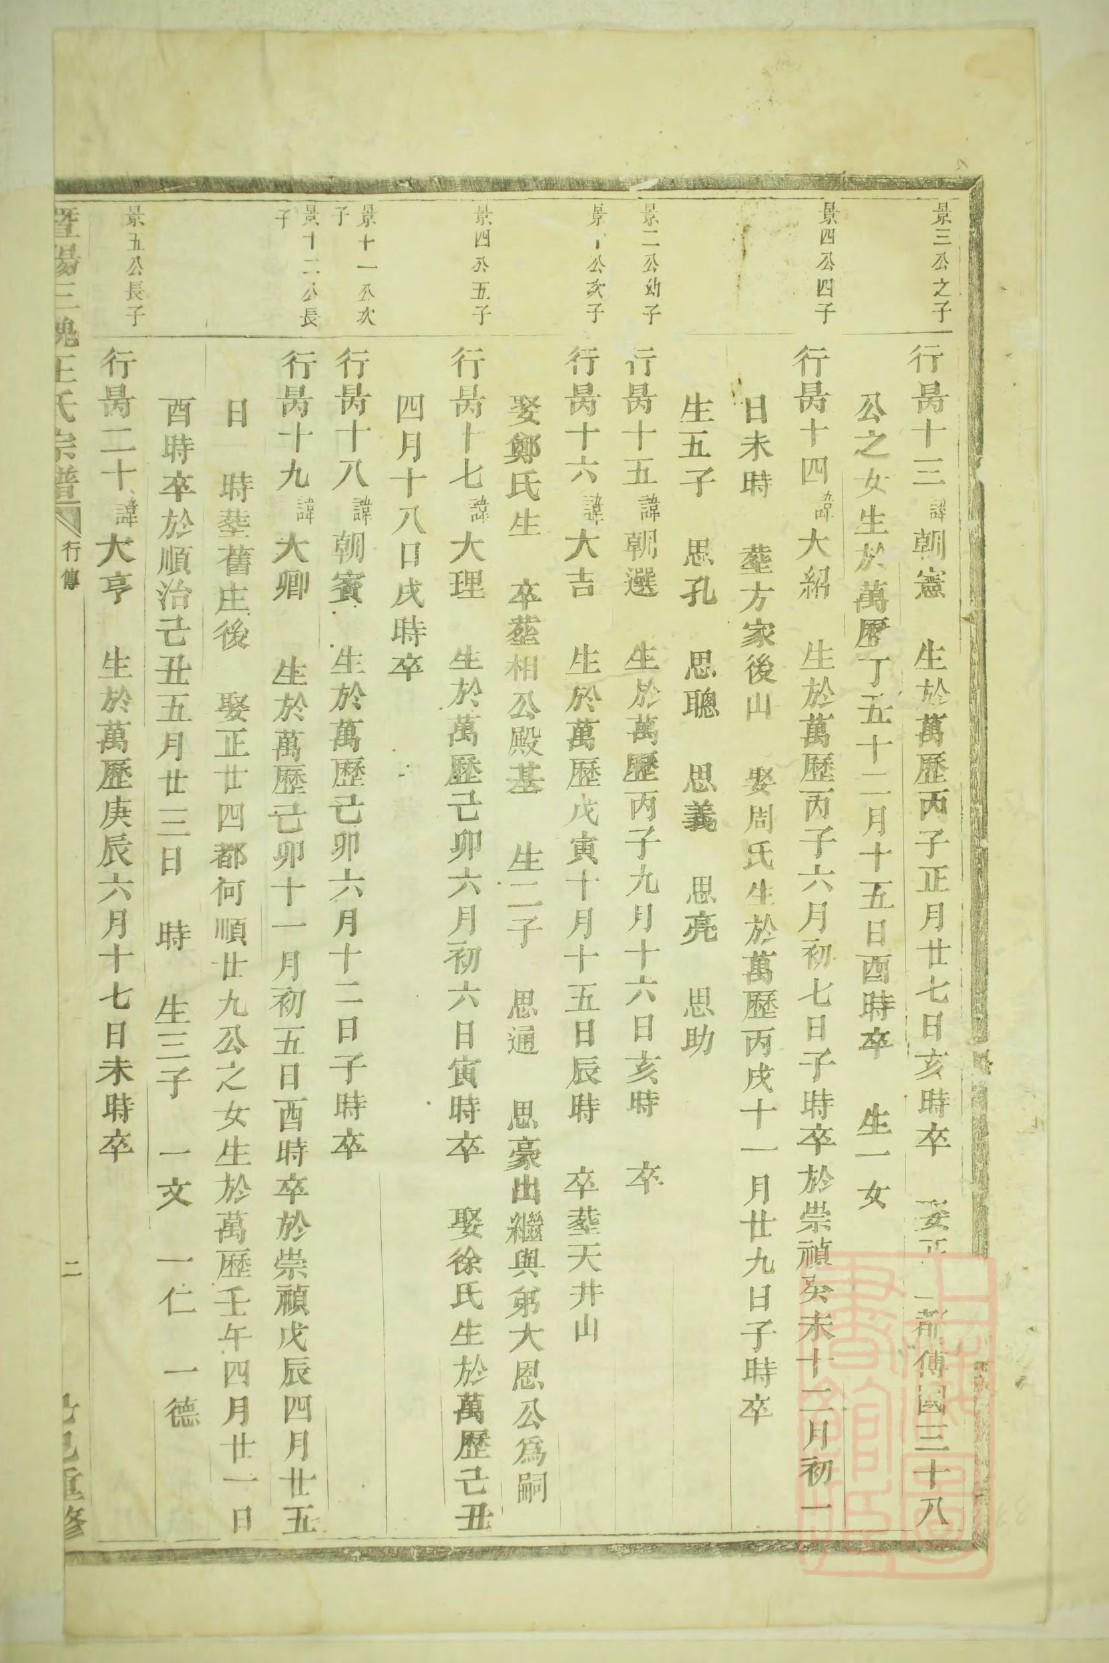 景三公之子
行昺十三諱朝憲 生於萬歷丙子正月廿七日亥時卒 娶正 都傅國三十八
公之女生於萬歷丁丑十二月十五日酉時卒 生一女
景四公四子
行昺十四諱大紹 生於萬歷丙子六月初七日子時卒於崇禎癸未十二月初一
日未時 塟方家後山 娶周氏生於萬歷丙戌十一月廿九日子時卒
生五子 思孔 思聰 思義 思亮 思助
景二公幼子
行昺十五諱朝選 生於萬歷丙子九月十六日亥時 卒
景 公次子
行昺十六諱大吉 生於萬歷戊寅十月十五日辰時 卒塟天井山
娶鄭氏生 卒塟相公殿基 生二子 思通 思豪出繼與弟大恩公爲嗣
景四公五子
行昺十七諱大理 生於萬歷己卯六月初六日寅時卒 娶徐氏生於萬歷己丑
四月十八日戌時卒
景十一公次
子
行昺十八諱朝賓 生於萬歷己卯六月十二日子時卒
景十二公長
子
行昺十九諱大卿 生於萬歷己卯十一月初五日酉時卒於崇禎戊辰四月廿五
日 時塟舊庄後 娶正廿四都何順廿九公之女生於萬歷壬午四月廿一日
酉時卒於順治己丑五月廿三日 時 生三子 一文 一仁 一德
景五公長子
行昺二十諱大亨 生於萬歷庚辰六月十七日未時卒
暨陽三槐王氏宗譜 行傳 二 重修